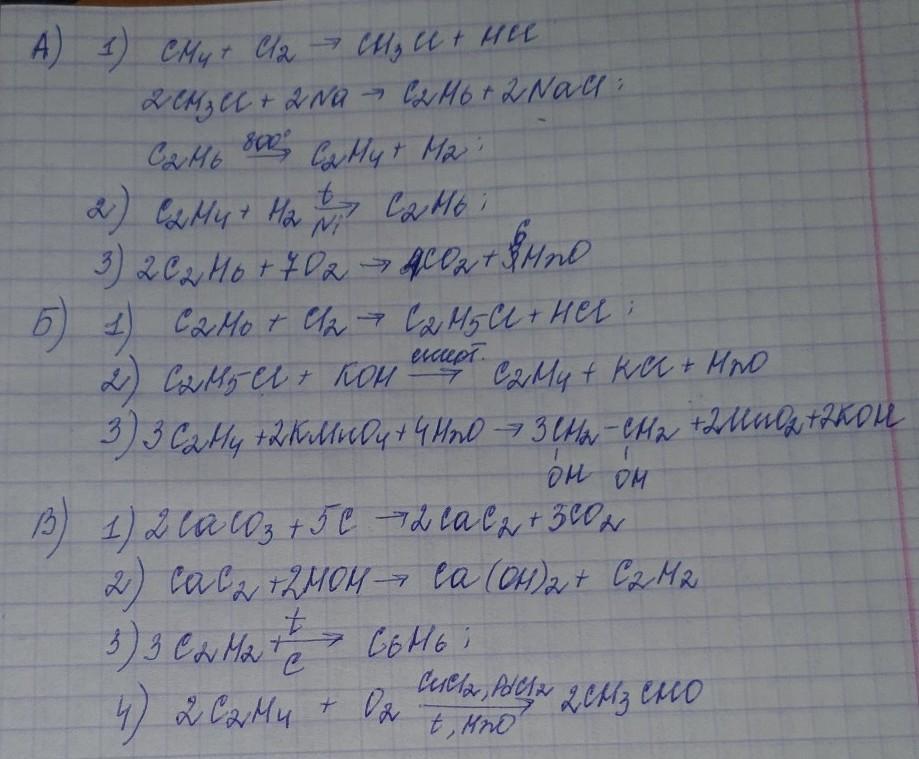 А) 1) CH4 + Cl2 → CH3Cl + HCl
2CH3Cl + 2Na → C2H6 + 2NaCl;
C2H6 800° → C2H4 + H2;
2) C2H4 + H2 t → Ni C2H6;
3) 2C2H6 + 7O2 → 4CO2 + 6H2O
Б) 1) C2H6 + Cl2 → C2H5Cl + HCl;
2) C2H5Cl + KOH спирт. → C2H4 + KCl + H2O
3) 3C2H4 + 2KMnO4 + 4H2O → 3CH2 - CH2 + 2MnO2 + 2KOH
OH OH
В) 1) 2CaCO3 + 5C → 2CaC2 + 3CO2
2) CaC2 + 2HOH → Ca(OH)2 + C2H2
3) 3C2H2 + t → C C6H6;
4) 2C2H4 + O2 CuCl2, PdCl2 → t, H2O 2CH3CHO